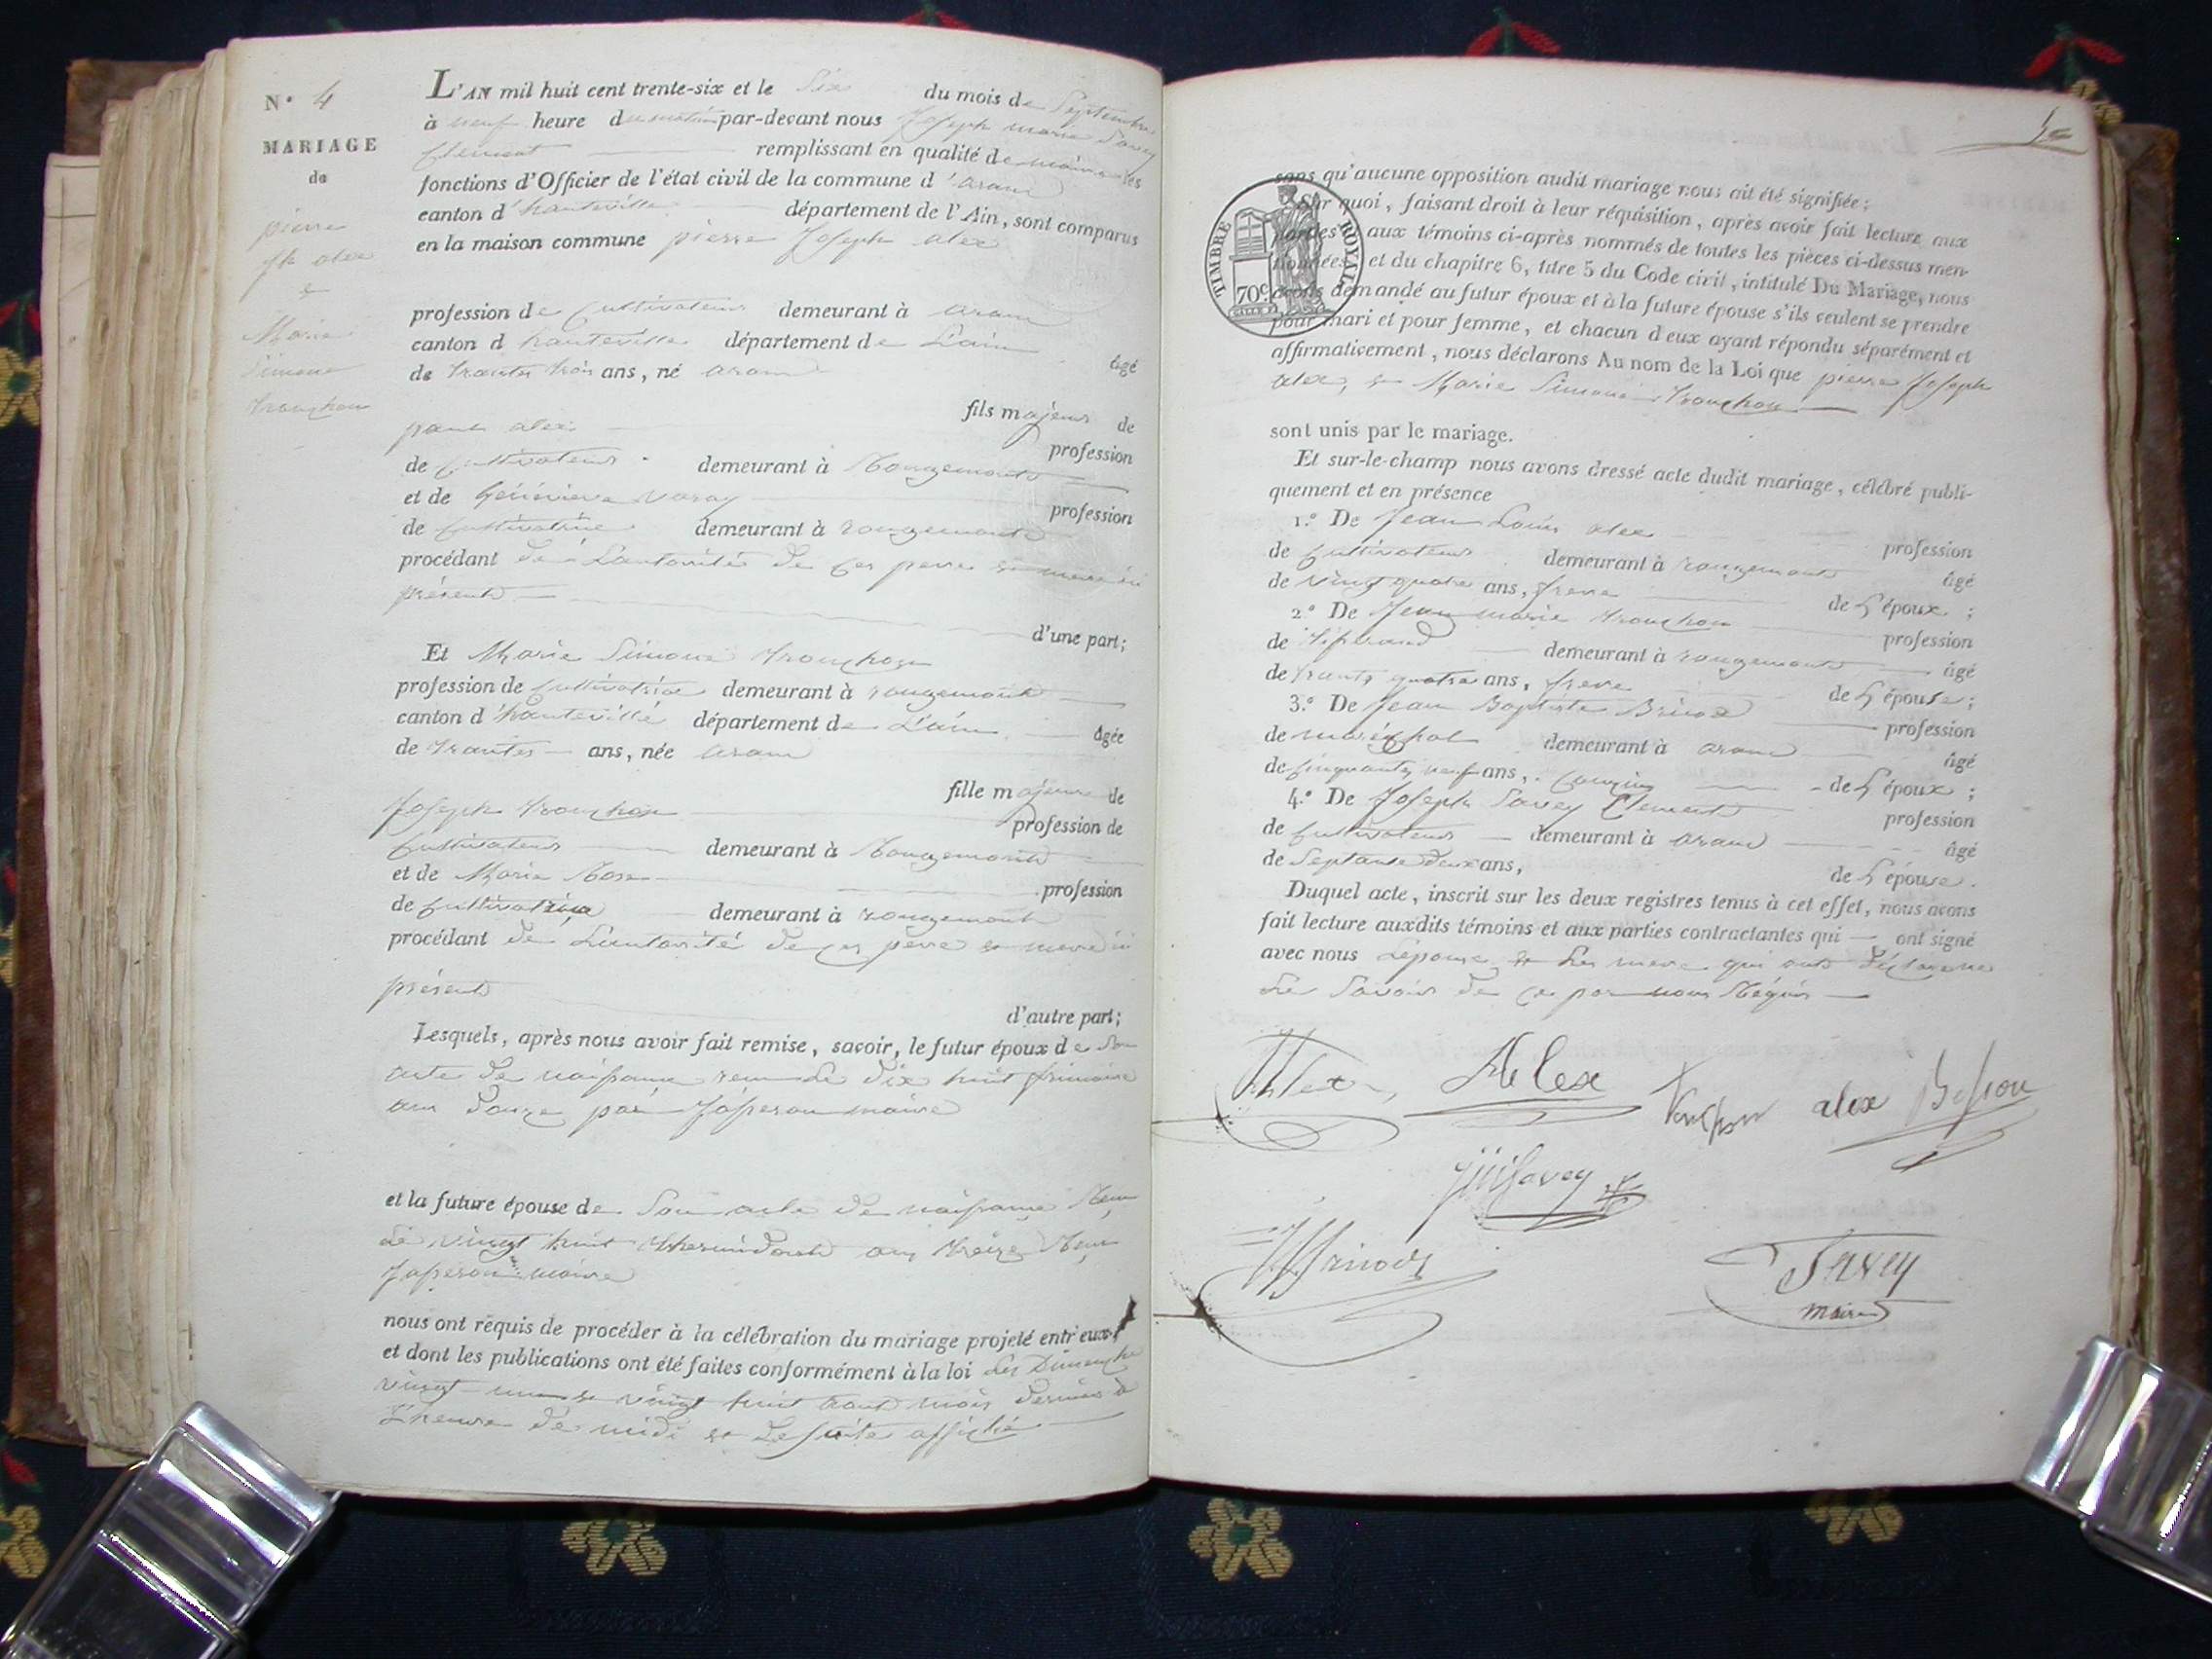 N° 4
MARIAGE
de
pierre
Jh alex
&
Marie
Simone
tronchon
L'AN mil huit cent trente-six et le Six du mois de Septembre
à neuf heure du matin par-devant nous Joseph marie Savey
Clement remplissant en qualité de maire les
fonctions d'Officier de l'état civil de la commune d'aranc
canton d'hauteville département de l'Ain, sont comparus
en la maison commune pierre Joseph alex
profession de Cultivateur demeurant à aranc
canton d hauteville département de L'ain âgé
de trante trois ans, né aranc
fils majeur de
alex profession
de Cultivateur demeurant à Rougemont
et de Génévieve Varay profession
de Cultivatrice demeurant à rougemont
procédant de L'autorité de ces perre & mere ici
présent
d'une part;
Et Marie Simone tronchon
profession de Cultivatrice demeurant à rougemont
canton d'hauteville département de L'ain âgée
de trantes ans, née aranc
fille majeure de
Joseph tronchon profession de
Cultivateur demeurant à Rougemont
et de Marie Rose profession
de Cultivatrice demeurant à rougemont
procédant de L'autorité de ces perre & mere ici
présent
d'autre part;
Lesquels, après nous avoir fait remise, savoir, le futur époux de Son
acte de naissance Le dix huit frimaire
an douze par maire
et la future épouse de Son acte de naissance
Le vingt huit thermidore an treize
maire
nous ont requis de procéder à la célébration du mariage projeté entr'eux,
et dont les publications ont été faites conformément à la loi Les Dimanche
vingt un & vingt huit aout mois dernier à
L'heure de midi & De suite affiché
sans qu'aucune opposition audit mariage nous ait été signifiée;
Sur quoi, faisant droit à leur réquisition, après avoir fait lecture aux
parties aux témoins ci-après nommés de toutes les pièces ci-dessus men-
tionnées, et du chapitre 6, titre 5 du Code civil, intitulé Du Mariage, nous
avons demandé au futur époux et à la future épouse s'ils veulent se prendre
pour mari et pour femme, et chacun d'eux ayant répondu séparément et
affirmativement, nous déclarons Au nom de la Loi que pierre Joseph
alex, & Marie Simone tronchon
TIMBRE ROYAL
70c
sont unis par le mariage.
Et sur-le-champ nous avons dressé acte dudit mariage, célébré publi-
quement et en présence
1.° De Jean Louis alex profession
de Cultivateur demeurant à rougemont âgé
de vingt quatre ans, frere de L'époux;
2.° De Jean marie tronchon profession
de Tisserand demeurant à rougemont âgé
de trante quatre ans, frere de L'épouse;
3.° De Jean Baptiste Brivod profession
de maréchal demeurant à aranc âgé
de Cinquante neuf ans, Couzin de L'époux;
4.° De Joseph Savey Clement profession
de Cultivateur demeurant à aranc âgé
de Septante deux ans, de L'épouse.
Duquel acte, inscrit sur les deux registres tenus à cet effet, nous avons
fait lecture auxdits témoins et aux parties contractantes qui ont signé
avec nous L'epouse & Les mere qui ont
Le Savoir de ce par nous Réquis
Alex
Alex
Tronchon
alex
Savey
Brivod
SAVEY
maire